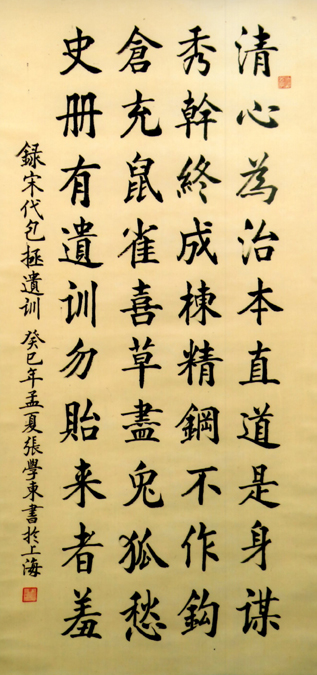 清心為治本直道是身謀
秀幹終成棟精鋼不作鈎
倉充鼠雀喜草盡兔狐愁
史册有遺训勿貽来者羞
録宋代包拯遺训 癸巳年孟夏張學東書於上海